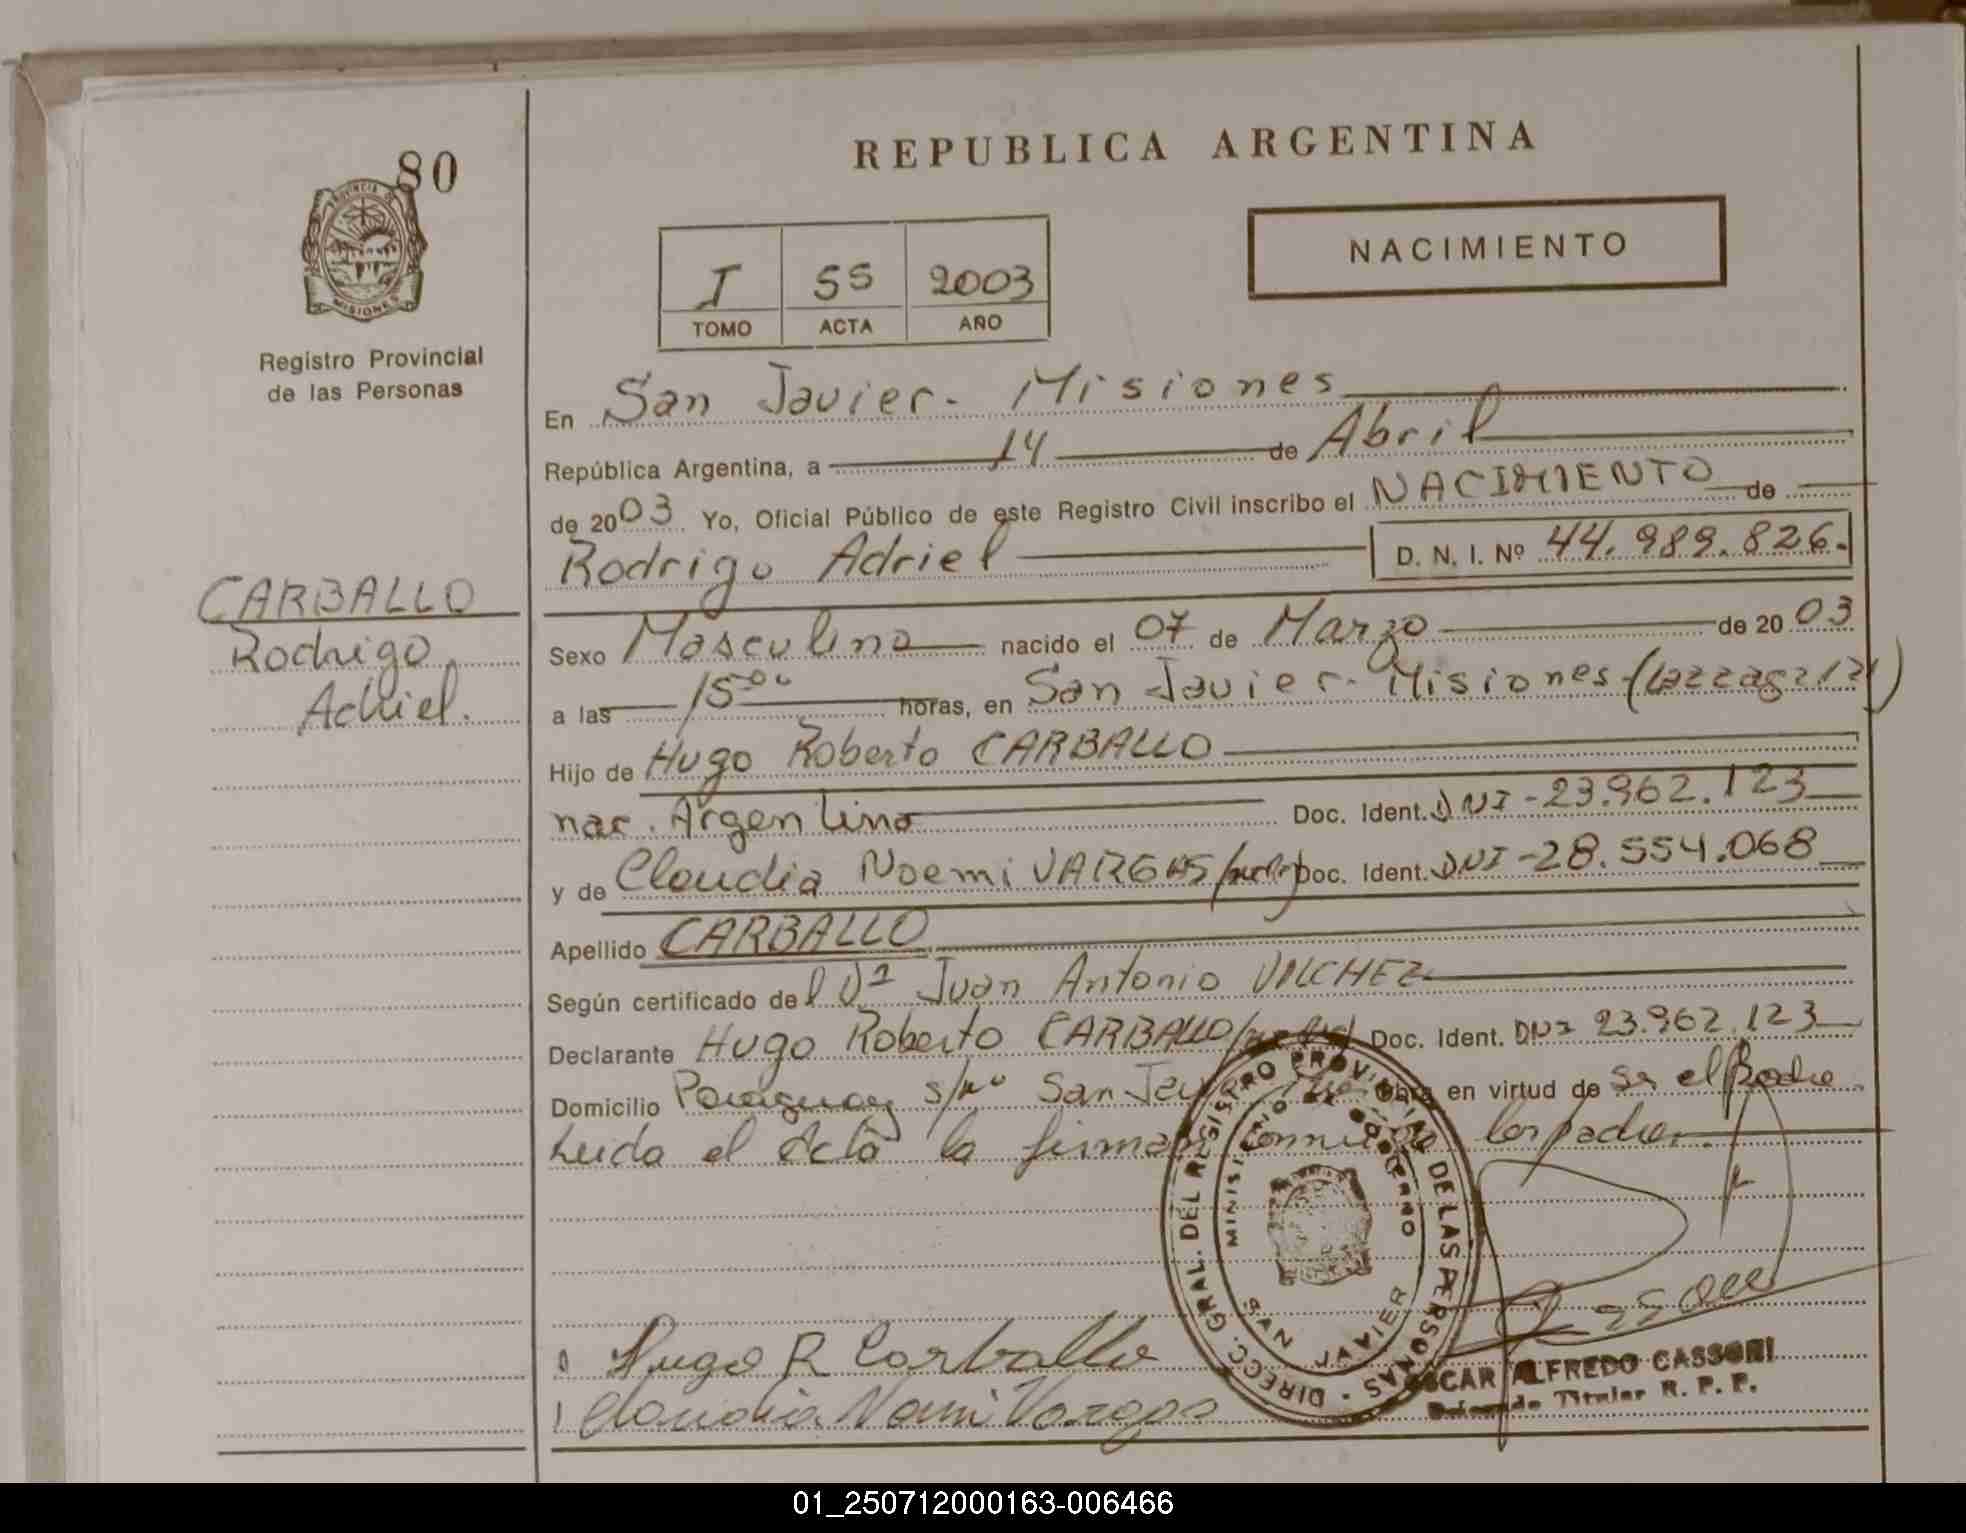 80
PROVINCIA DE
MISIONES
Registro Provincial
de las Personas
CARBALLO
Rodrigo
Adriel.
REPUBLICA ARGENTINA
NACIMIENTO
I 55 2003
TOMO ACTA AÑO
En San Javier - Misiones
República Argentina, a 14 de Abril
de 2003 Yo, Oficial Público de este Registro Civil inscribo el NACIMIENTO de
Rodrigo Adriel D. N. I. Nº 44.989.826.
Sexo Masculino nacido el 07 de Marzo de 2003
a las 15 00 horas, en San Javier - Misiones
Hijo de Hugo Roberto CARBALLO
nac. Argentino Doc. Ident. DNI - 23.962.123
y de Claudia Noemi VARGAS Doc. Ident. DNI - 28.554.068
Apellido CARBALLO
Según certificado del Juan Antonio VILCHEZ
Declarante Hugo Roberto CARBALLO Doc. Ident. DNI 23.962.123
Domicilio Paraguay s/nº San Javier obra en virtud de ser el Padre
Leida el Acta la firman conmigo los padres.
DIRECC. GRAL. DEL REGISTRO PROVINCIAL DE LAS PERSONAS
MINISTERIO DE GOBIERNO
SAN JAVIER
Hugo R Carballo
Claudia Noemi Vargas
OSCAR ALFREDO CASSONI
Delegado Titular R. P. P.
01_250712000163-006466